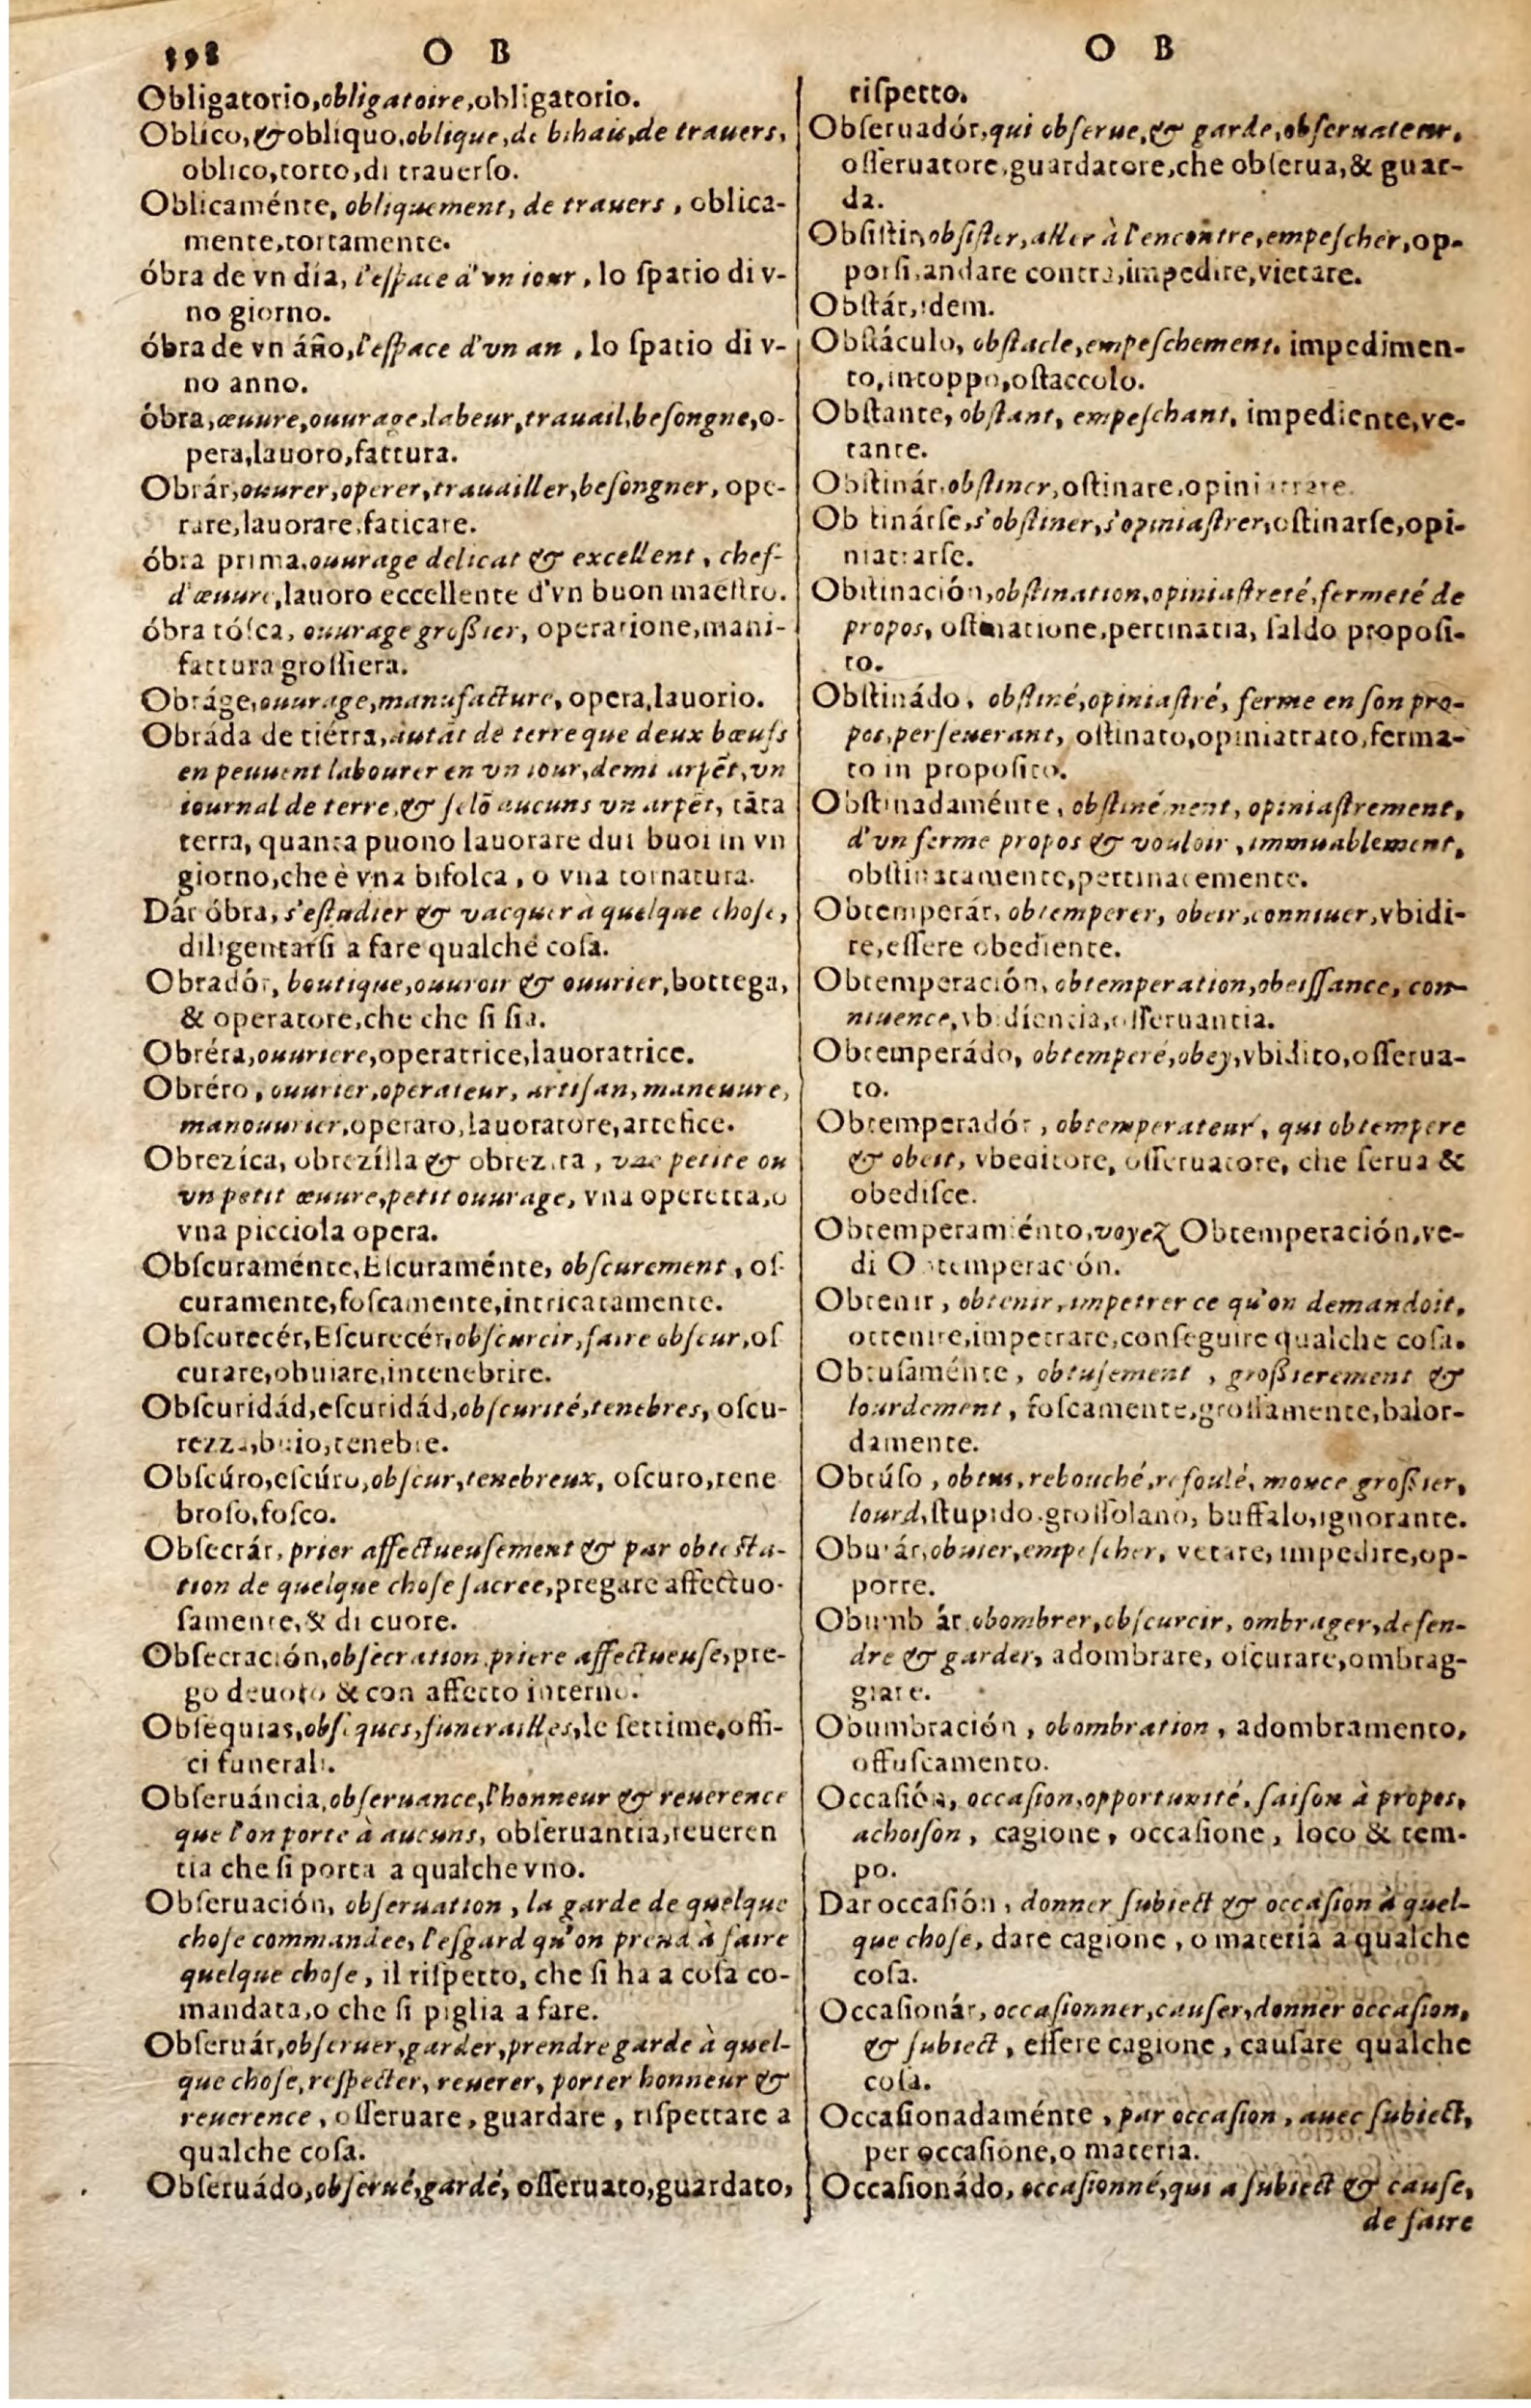 398 O B
Obligatorio,obligatoire,obligatorio.
Oblico,&obliquo,oblique,de bihais,de trauers,
oblico,torto,di trauerſo.
Oblicaménte, obliquement, de trauers , oblica-
mente,tortamente.
óbra de vn día, l'eſpace d'vn iour , lo ſpatio di v-
no giorno.
óbra de vn áño,l'eſpace d'vn an , lo ſpatio di v-
no anno.
óbra,œuure,ouurage,labeur,trauail,beſongne,o-
pera,lauoro,fattura.
Obrár,ouurer,operer,trauailler,beſongner, ope-
rare,lauorare,faticare.
óbra prima,ouurage delicat & excellent , chef-
d'œuure,lauoro eccellente d'vn buon maeſtro.
óbra tóſca, ouurage groſsier, operatione,mani-
fattura groſſiera.
Obráge,ouurage,manufacture, opera,lauorio.
Obráda de tiérra,autāt de terre que deux bœufs
en peuuent labourer en vn iour,demi arpēt,vn
iournal de terre,& ſelō aucuns vn arpēt, tāta
terra, quanta puono lauorare dui buoi in vn
giorno,che è vna bifolca , o vna tornatura.
Dár óbra, s'eſtudier & vacquer à quelque choſe,
diligentarſi a fare qualche coſa.
Obradór, boutique,ouuroir & ouurier,bottega,
& operatore,che che ſi ſia.
Obréra,ouuriere,operatrice,lauoratrice.
Obréro , ouurier,operateur, artiſan, maneuure,
manouurier,operaro,lauoratore,artefice.
Obrezíca, obrezílla & obrezita , vne petite ou
vn petit œuure,petit ouurage, vna operetta,o
vna picciola opera.
Obſcuraménte,Eſcuraménte, obſcurement , oſ-
curamente,foſcamente,intricatamente.
Obſcurecér,Eſcurecér,obſcurcir,faire obſcur,oſ
curare,obuiare,intenebrire.
Obſcuridád,eſcuridád,obſcurité,tenebres, oſcu-
rezza,buio,tenebre.
Obſcúro,eſcúro,obſcur,tenebreux, oſcuro,tene
broſo,foſco.
Obſecrár, prier affectueuſement & par obteſta-
tion de quelque choſe ſacree,pregare affectuo-
ſamente,& di cuore.
Obſecración,obſecration,priere affectueuſe,pre-
go deuoto & con affetto interno.
Obſequias,obſeques,funerailles,le ſettime,offi-
ci funerali.
Obſeruáncia,obſeruance,l'honneur & reuerence
que l'on porte à aucuns, obſeruantia,reueren
tia che ſi porta a qualche vno.
Obſeruación, obſeruation , la garde de quelque
choſe commandee, l'eſgard qu'on prend à faire
quelque choſe , il riſpetto, che ſi ha a coſa co-
mandata,o che ſi piglia a fare.
Obſeruár,obſeruer,garder,prendre garde à quel-
que choſe,reſpecter, reuerer, porter honneur &
reuerence , oſſeruare, guardare , riſpettare a
qualche coſa.
Obſeruádo,obſerué,gardé, oſſeruato,guardato,
O B
riſpetto.
Obſeruadór,qui obſerue,& garde,obſeruateur,
oſſeruatore,guardatore,che obſerua,& guar-
da.
Obſiſtir,obſiſter,aller à l'encontre,empeſcher,op-
porſi,andare contra,impedire,vietare.
Obſtár,idem.
Obſtáculo, obſtacle,empeſchement, impedimen-
to,intoppo,oſtaccolo.
Obſtante, obſtant, empeſchant, impediente,ve-
tante.
Obſtinár,obſtiner,oſtinare,opiniatrare.
Obſtinárſe,s'obſtiner,s'opiniaſtrer,oſtinarſe,opi-
niatrarſe.
Obſtinación,obſtination,opiniaſtreté,fermeté de
propos, oſtinatione,pertinatia, ſaldo propoſi-
to.
Obſtinádo , obſtiné,opiniaſtré, ferme en ſon pro-
pos,perſeuerant, oſtinato,opiniatrato,ferma-
to in propoſito.
Obſtinadaménte , obſtinément, opiniaſtrement,
d'vn ferme propos & vouloir , immuablement,
obſtinatamente,pertinacemente.
Obtemperár, obtemperer, obeir,conniuer,vbidi-
re,eſſere obediente.
Obtemperación, obtemperation,obeiſſance, con-
niuence,vbidíentia,oſſeruantia.
Obtemperádo, obtemperé,obey,vbidito,oſſerua-
to.
Obtemperadór , obtemperateur, qui obtempere
& obeit, vbeditore, oſſeruatore, che ſerua &
obediſce.
Obtemperamiénto,voyez Obtemperación,ve-
di Obtemperación.
Obtenir , obtenir,impetrer ce qu'on demandoit,
ottenire,impetrare,conſeguire qualche coſa.
Obtuſaménte , obtuſement , groſsierement &
lourdement , foſcamente,groſſamente,balor-
damente.
Obtúſo , obtus,rebouché,refoulé, mouce groſsier,
lourd,ſtupido,groſſolano, buffalo,ignorante.
Obuiár,obuier,empeſcher, vetare, impedire,op-
porre.
Obumbrár,obombrer,obſcurcir, ombrager,defen-
dre & garder, adombrare, oſcurare,ombrag-
giare.
Obumbración , obombration , adombramento,
offuſcamento.
Occaſión, occaſion,opportunité, ſaiſon à propos,
achoiſon , cagione, occaſione , loco & tem-
po.
Dar occaſión , donner ſubiect & occaſion à quel-
que choſe, dare cagione , o materia a qualche
coſa.
Occaſionár, occaſionner,cauſer,donner occaſion,
& ſubiect , eſſere cagione , cauſare qualche
coſa.
Occaſionadaménte , par occaſion , auec ſubiect,
per occaſione,o materia.
Occaſionádo, occaſionné,qui a ſubiect & cauſe,
de faire